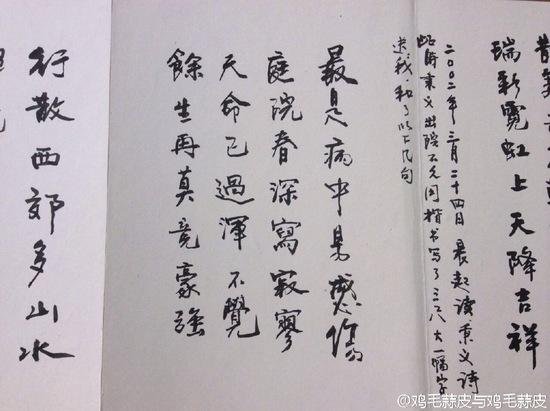 瑞彩霓虹上天降吉祥
二〇〇二年三月二十四日晨起读秉义诗
此时秉义出院不久用楷书写了三尺大一幅字
送我,和了以上几句
最是病中易感傷
庭院春深寫寂寥
天命已過渾不覺
餘生再莫竞豪強
行散西郊多山水
@鸡毛蒜皮与鸡毛蒜皮